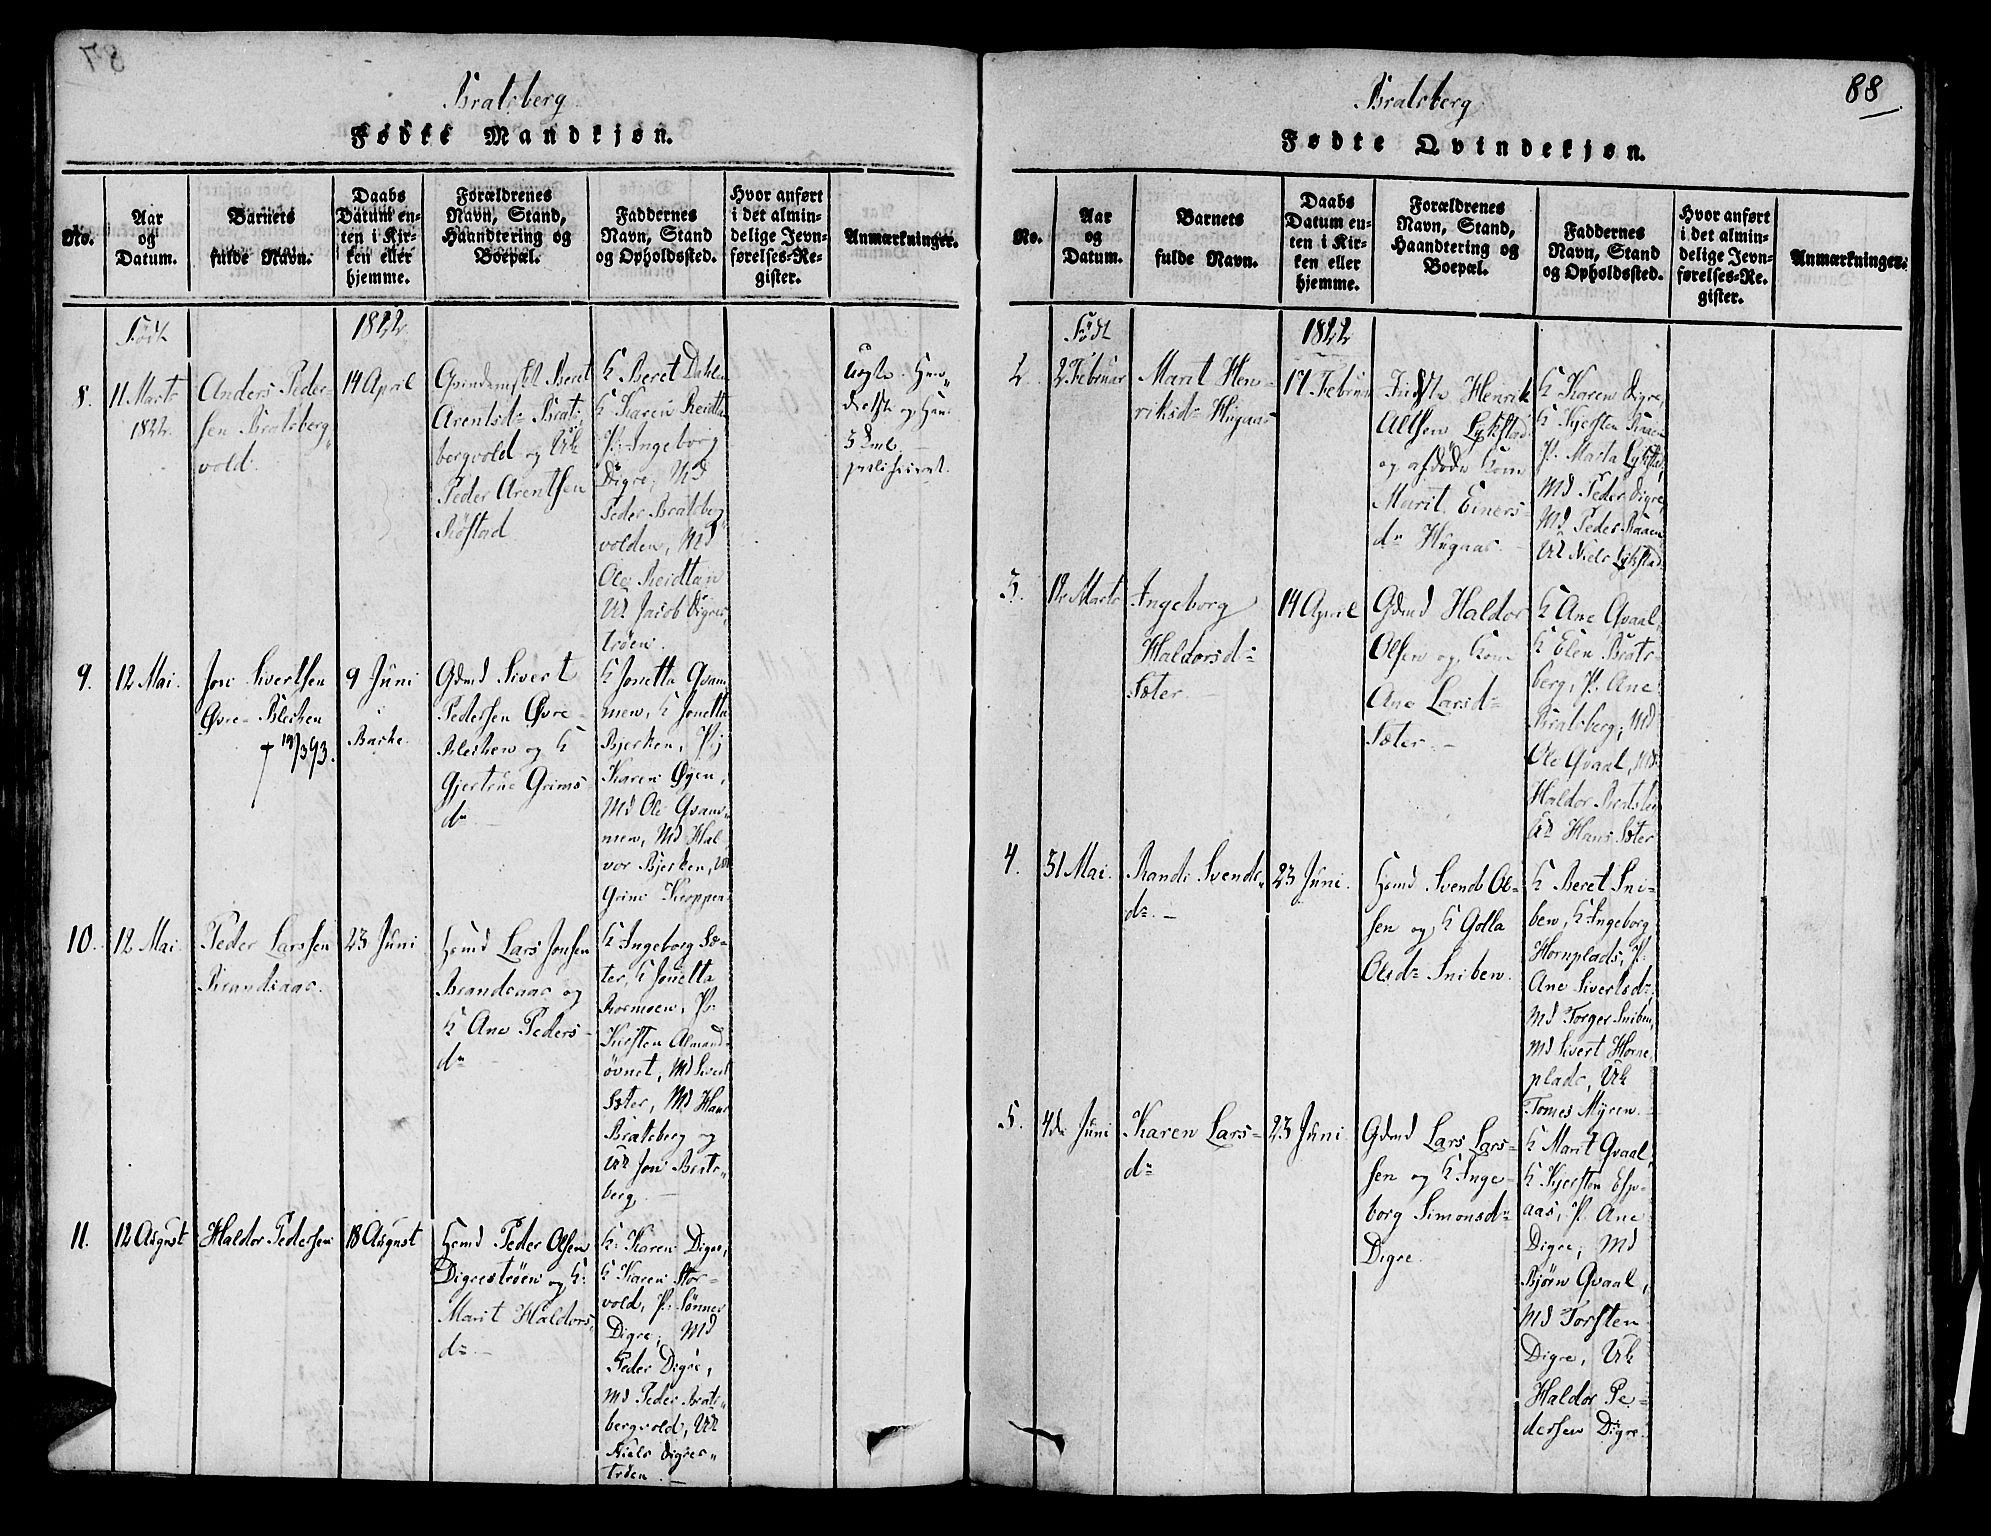 Bratsberg
Fødte Mandkjøn.
No.
Aar
og
Datum.
Barnets
fulde Navn.
Daabs
Datum en-
ten i Kir-
ken eller
hjemme.
Forældrenes
Navn, Stand,
Haandtering og
Boepæl.
Faddernes
Navn, Stand
og Opholdssted.
Hvor anført
i det almin-
delige Jevn-
førelses-Re-
gister.
Anmærkninger.
Født
1822
8.
11 Marts
1822.
Anders Peder-
sen Bratsberg
vold.
14 April
Beret
Arentsd. Brats
bergvold og Uk
Peder Arentsen
Røstad
K Beret Dahlen
K Karen Reidtan
P. Ingeborg
Digre, Md
Peder Bratsberg
volden, Md
Ole Reidtan
Uk Jacob Digres
trøen.
9.
12 Mai.
Jon Sivertsen
Øvre-Blekken
† 19/3 93.
9 Juni
Gdmd Sivert
Pedersen Øvre-
Blekken og K
Gjertrue Grims-
dr
K Jonetta Qvam
men, K Jonetta
Bjerken, Pij
Karen Øyen,
Md Ole Qvam-
men, Md Hal
vor Bjerken, Uk
Grim Kroppen
10.
12 Mai
Peder Larssen
Brandsaas.
23 Juni
Hsmd Lars Jonsen
Brandsaas og
K Ane Peders-
dr
K Ingeborg Sæ-
ter, K Jonetta
Rosmoen, P.
Kirsten Almand-
øvnet, Md Sivert
Sæter, Md Hans
Bratsberg og
Uk Jon Brats-
berg.
11.
12 August
Haldor Pedersen
18 August
Hsmd Peder Olsen
Digrestrøen og K.
Marit Haldors-
dr
K. Karen Digre,
K Karen Stor-
vold, P. Sønnev
Digre, Md
Peder Digre,
Md Peder Brats-
bergvold, Uk
Niels Digres-
trøen
88
Bratsberg
Fødte Qvindekjøn.
No.
Aar
og
Datum.
Barnets
fulde Navn.
Daabs
Datum en-
ten i Kir-
ken eller
hjemme.
Forældrenes
Navn, Stand,
Haandtering og
Boepæl.
Faddernes
Navn, Stand
og Opholdssted.
Hvor anført
i det almin-
delige Jevn-
førelses-Re-
gister.
Anmærkninger.
Født
1822
2.
2 Februar
Marit Hen-
riksdr Hugaas
17 Februar
Henrik
Alfsen Lykstad
og afdøde Kone
Marit Einers-
dr Hugaas.
K Karen Digre,
K Kjersten Raaen
P. Marta Lykstad,
Md Peder Digre,
Md Peder Raaen
Uk Niels Lykstad
3.
12 Marts
Ingeborg
Haldorsdr
Sæter.
14 April
Gdmd Haldor
Olsen og Kone
Ane Larsdr
Sæter.
K Ane Qvaal
K Elen Brats-
berg, P. Ane
Bratsberg, Md
Ole Qvaal, Md
Haldor
Uk Hans Sæter
4.
31 Mai.
Randi Svends-
dr.
23 Juni.
Hsmd Svend Ol-
sen og K Golla
Olsdr Sniben.
K Beret Sni-
ben, K Ingeborg
Hornplads, P.
Ane Sivertsdr
Md Torger Sniben,
Md Sivert Horne-
plads, Uk
Tomes Myren.
5.
4de Juni
Karen Lars-
dr
23 Juni
Gdmd Lars Lars-
sen og K Inge-
borg Simonsdr
Digre.
K Marit Qvaal
K Kjersten Esp-
aas, P. Ane
Digre, Md
Bjørn Qvaal,
Md Torsten
Digre, Uk
Haldor Pe-
dersen Digre.